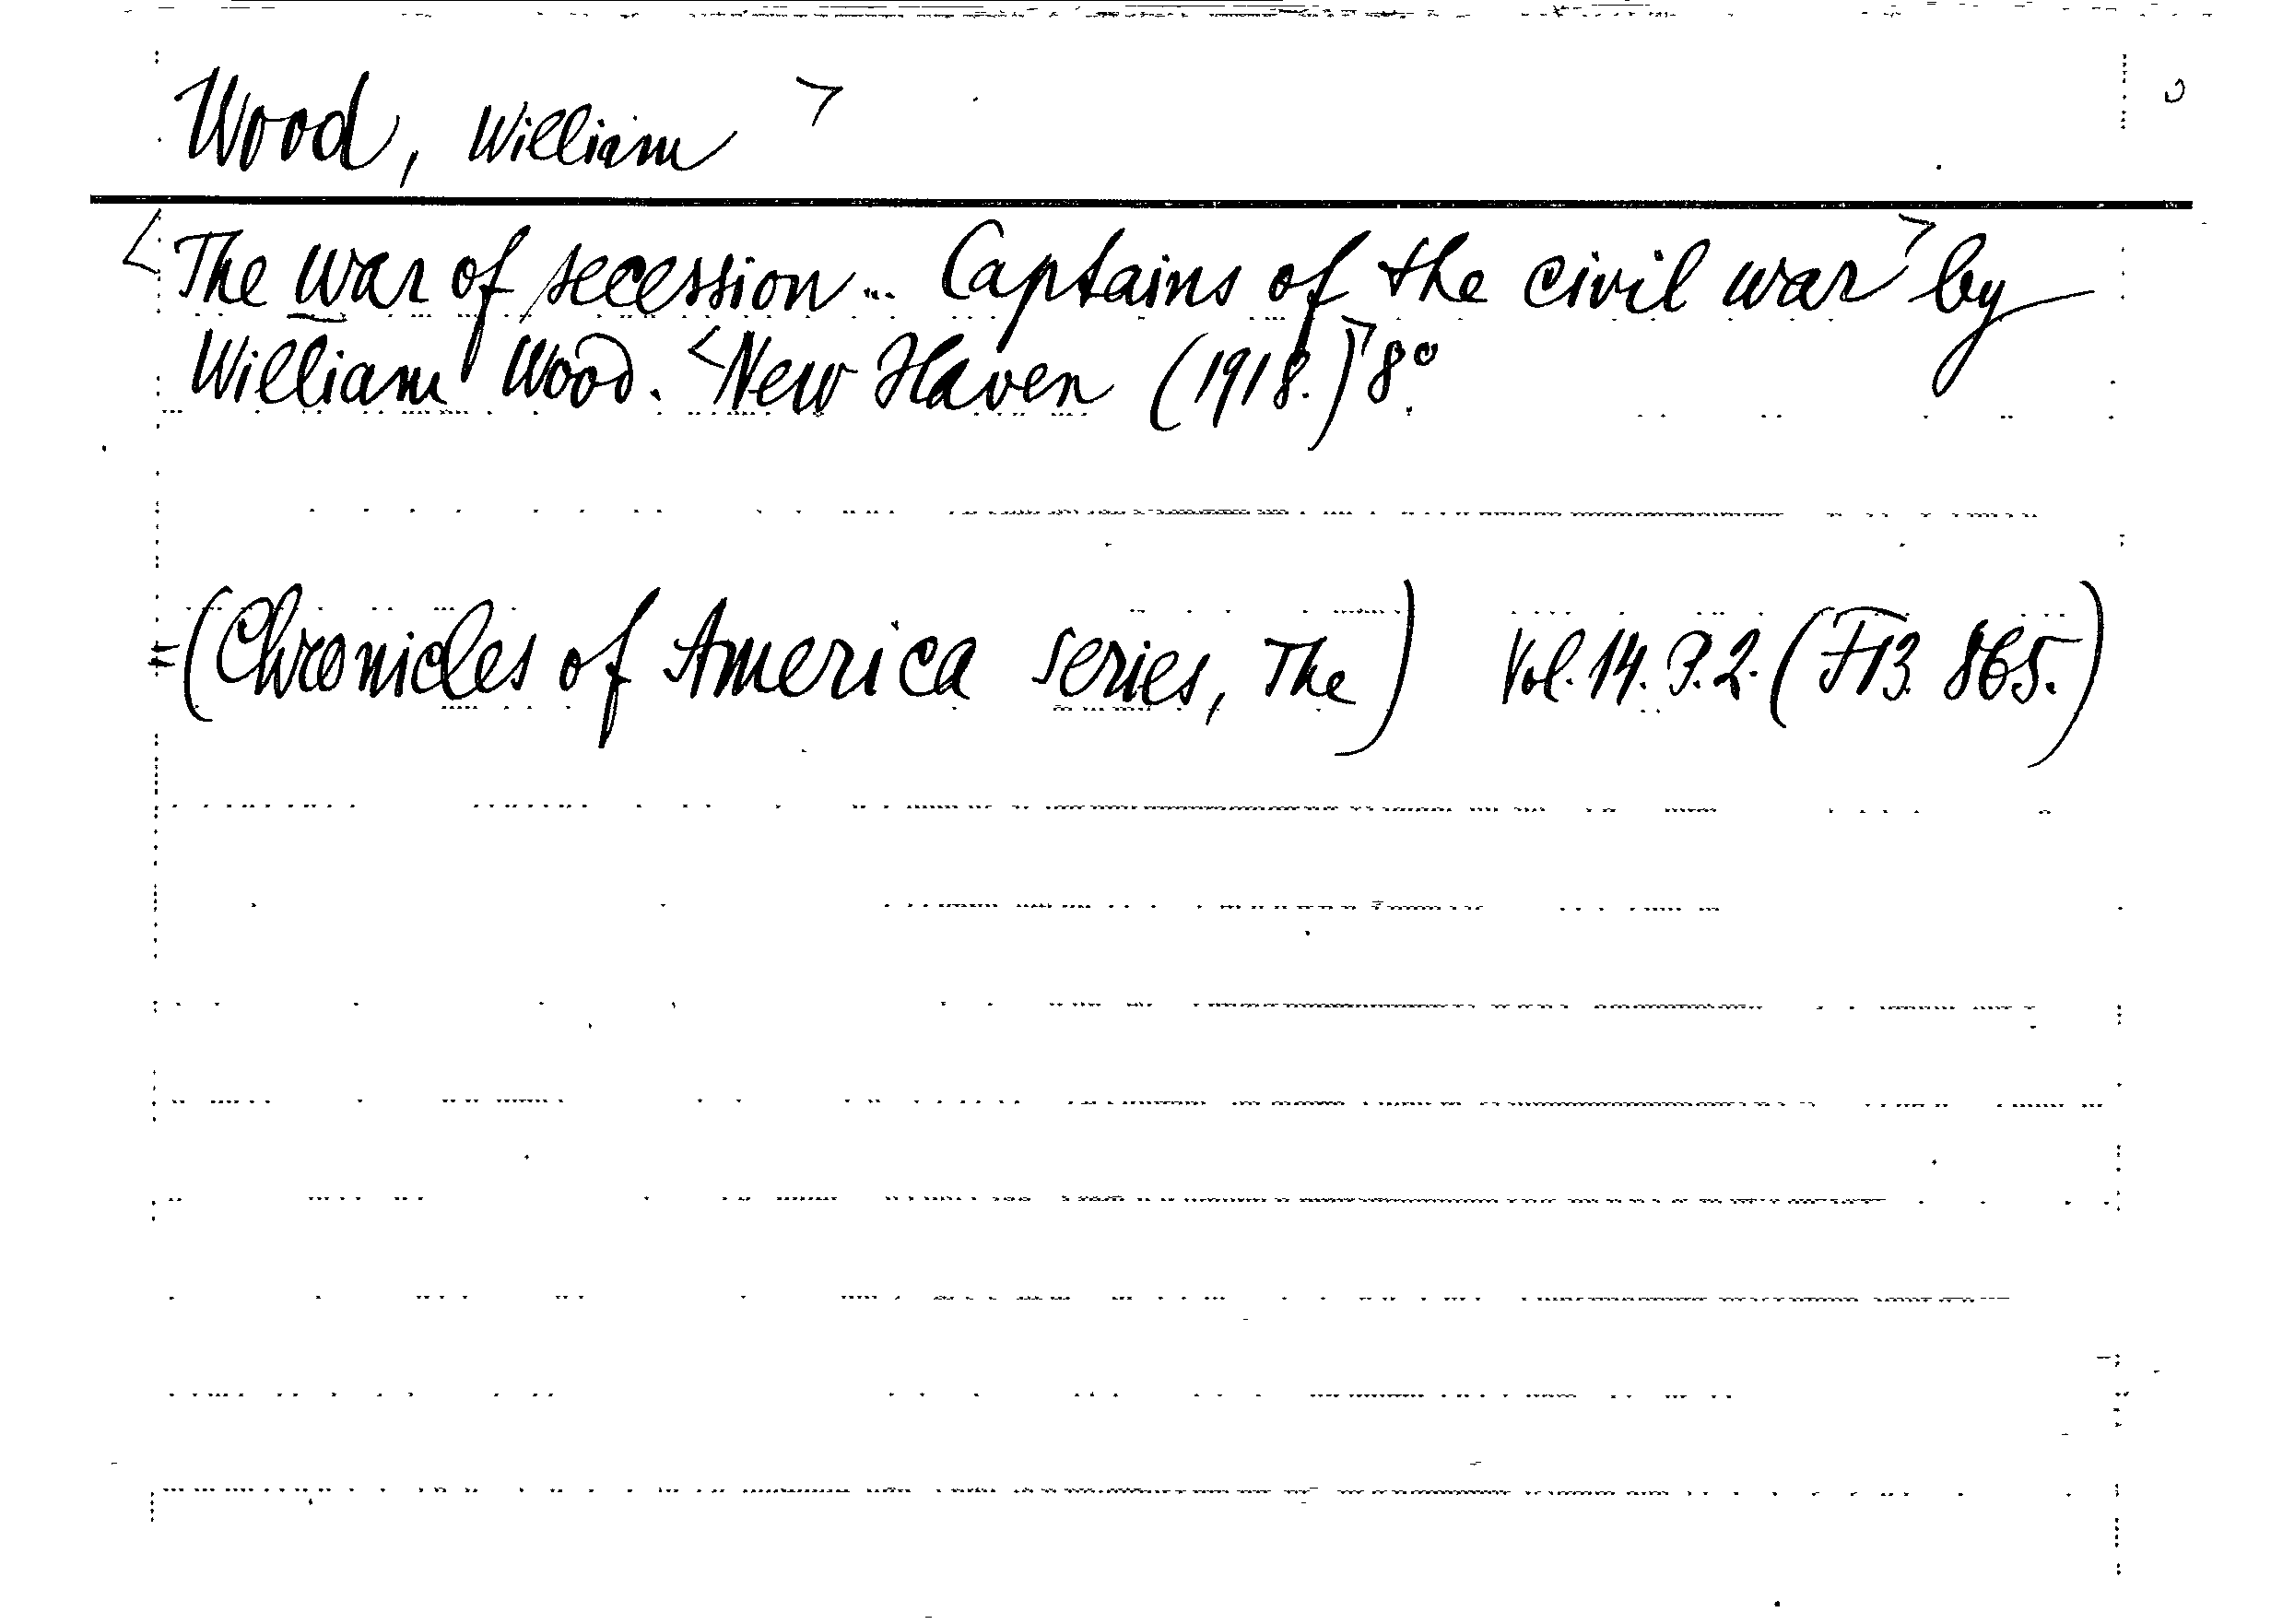 Wood, William >
<The war of secession... Captains of the civil war> by
William Wood. <New Haven (1918.)> 8°.
=(Chronicles of America series, The) Vol. 14. P. 2. (F13. 865.)